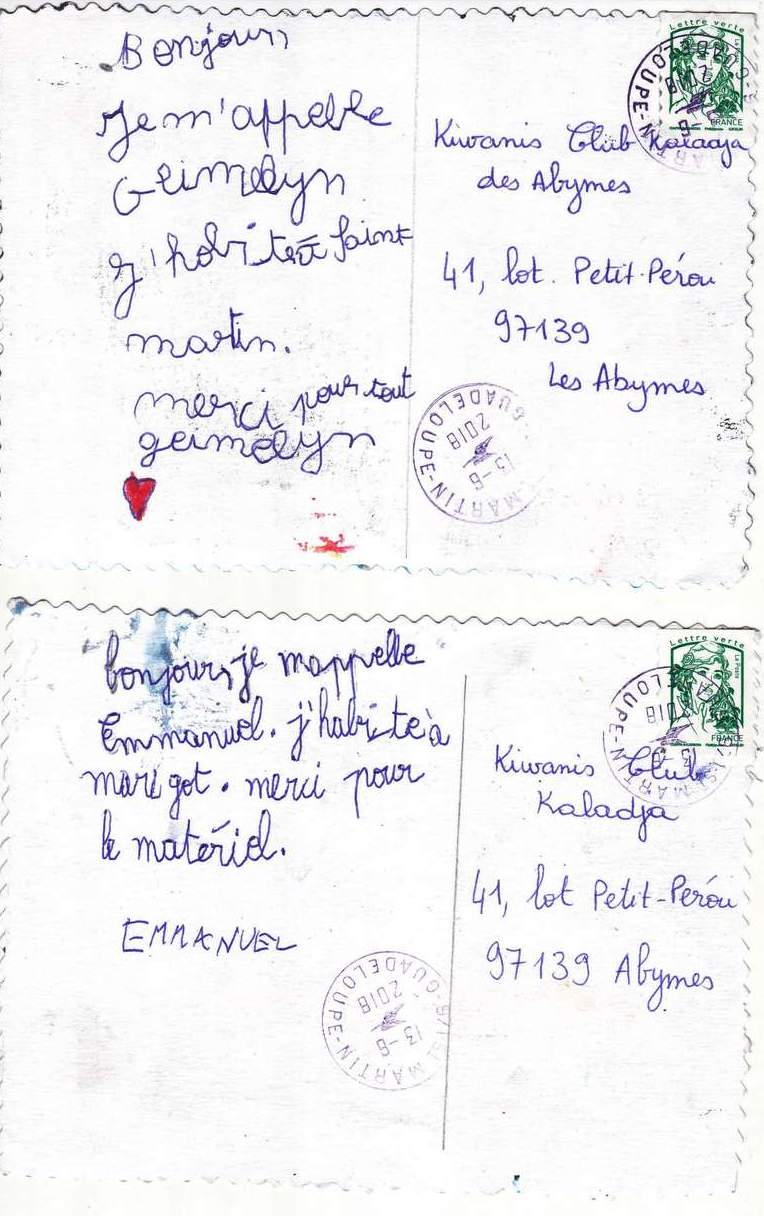 Bonjour
Je m'appelle
Geimelyn
J'habite à Saint
martin.
merci pour tout
geimelyn
Lettre verte
FRANCE
Kiwanis Club Kaladja
des Abymes
41, lot. Petit-Pérou
97139
Les Abymes
MARTIN - GUADELOUPE
13-6
2018
bonjour, je mappelle
Emmanuel. j'habite à
marigot. merci pour
le matériel.
EMMANUEL
Lettre verte
La Poste
FRANCE
Kiwanis Club
Kaladja
41, lot Petit-Pérou
97139 Abymes
MARTIN - GUADELOUPE
13-6
2018